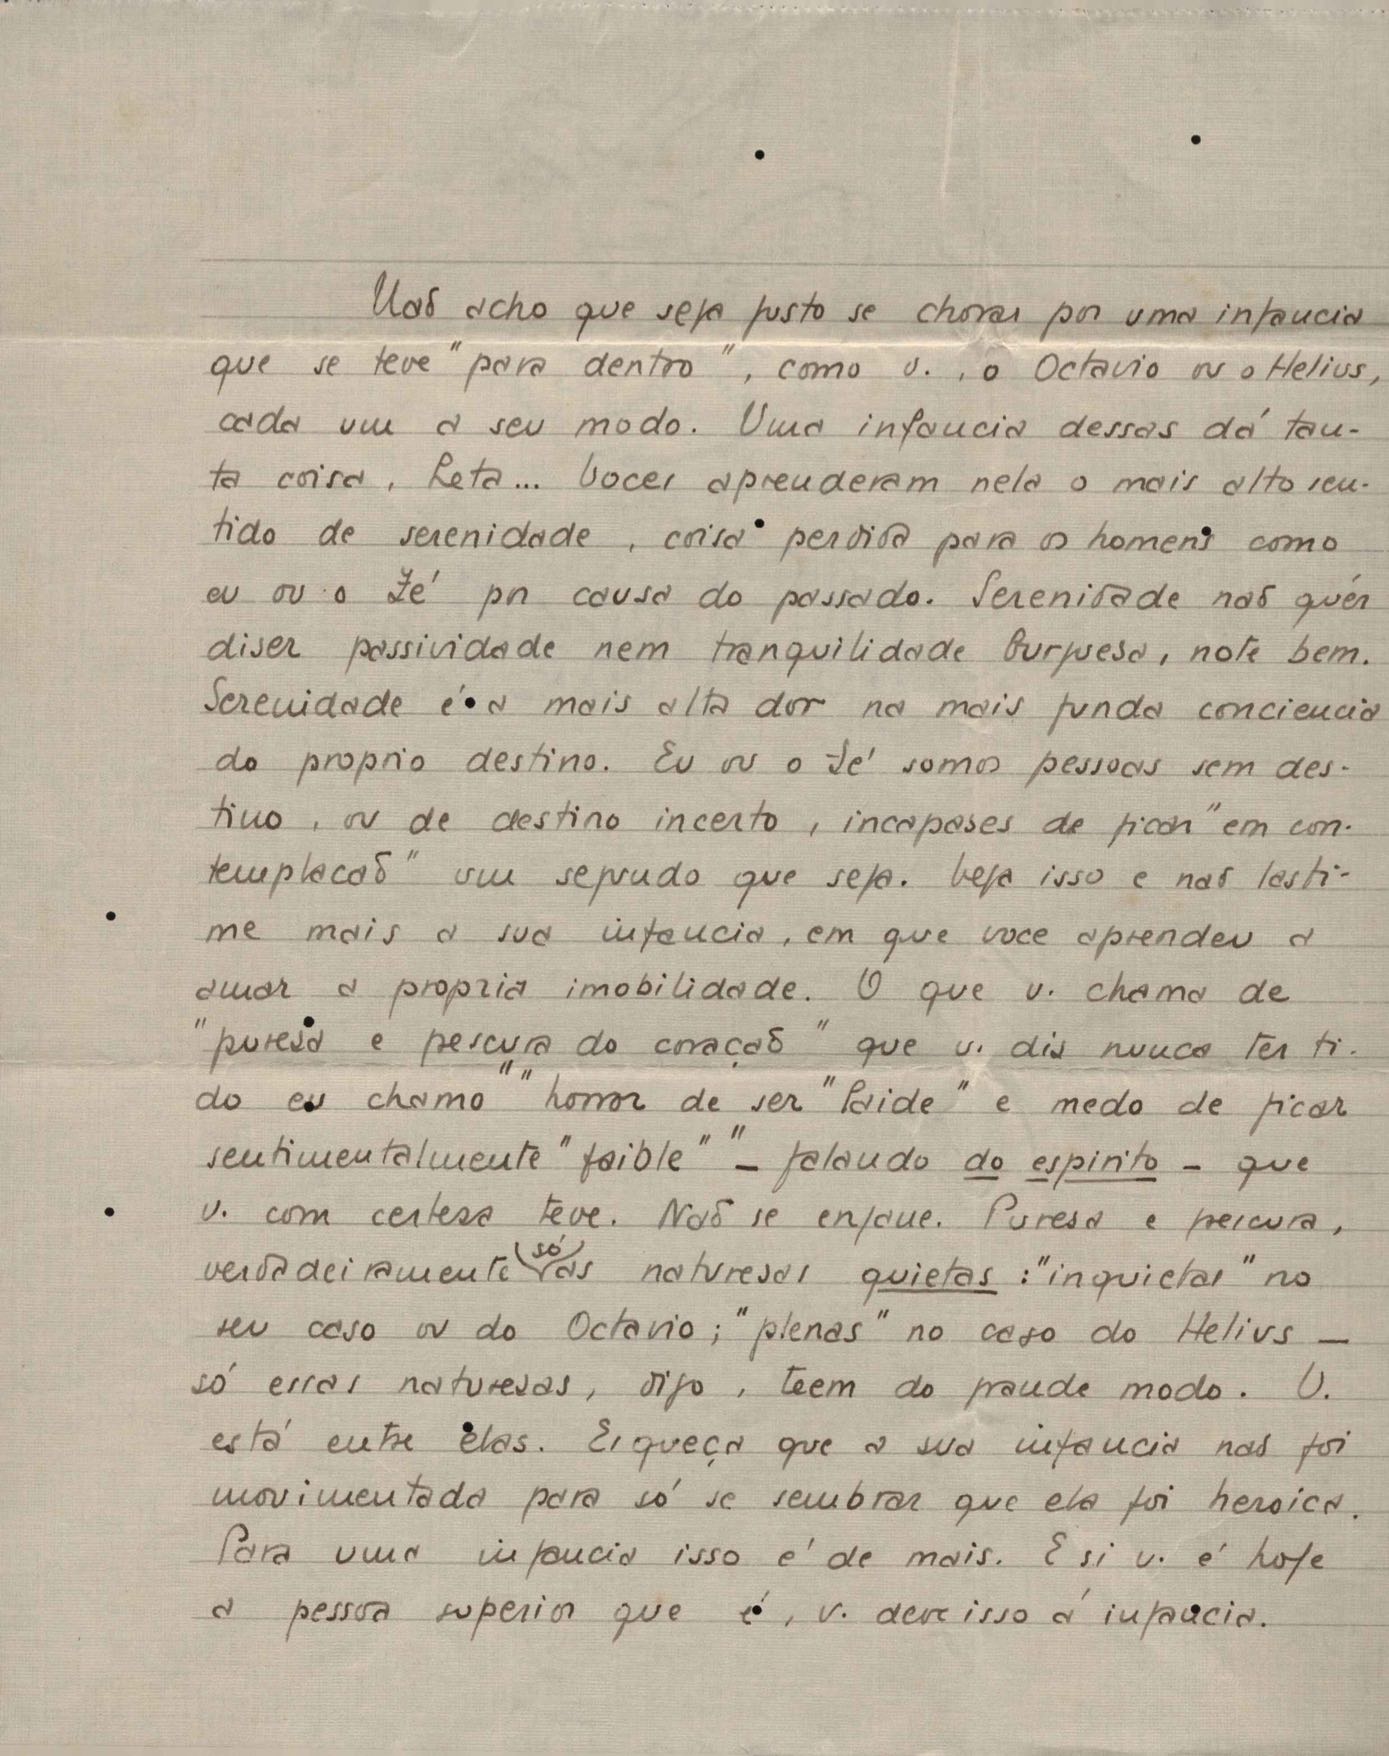 Naõ acho que seja justo se chorar por uma infancia
que se teve "para dentro", como v., o Octavio ou o Helius,
cada um a seu modo. Uma infancia dessas dá tan-
ta coisa, Leta... Voces aprenderam nela o mais alto sen-
tido de serenidade, coisa perdida para os homens como
eu ou o Zé por causa do passado. Serenidade naõ quér
diser passividade nem tranquilidade burguesa, note bem.
Serenidade é a mais alta dor na mais funda conciencia
do proprio destino. Eu ou o Zé somos pessoas sem des-
tino, ou de destino incerto, incapases de ficar "em con-
templacaõ" um segundo que seja. Veja isso e naõ lasti-
me mais a sua infancia, em que voce aprendeu a
amar a propria imobilidade. O que v. chama de
"puresa e pescura do coraçaõ" que v. dis nunca ter ti-
do eu chamo " "horror de ser "laide" e medo de ficar
sentimentalmente "faible" " - falando do espirito - que
v. com certesa teve. Naõ se engane. Puresa e frescura,
verdadeiramente (só) as naturesas quietas : "inquietas" no
seu caso ou do Octavio; "plenas" no caso do Helius -
só essas naturesas, digo, teem do grande modo. V.
está entre elas. Esqueça que a sua infancia naõ foi
movimentada para só se lembrar que ela foi heroica.
Para uma infancia isso é de mais. E si v. é hoje
a pessoa superior que é, v. deve isso á infancia.